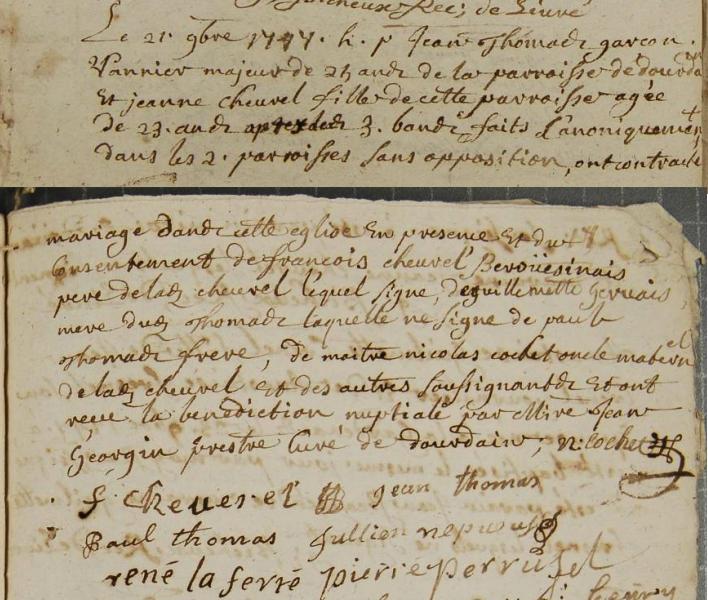 Rec; de Livré
Le 21. 9bre 1747. h. p Jean Thomas garçon
Vannier majeur de 25 ans de la parroisse de dourda
Et jeanne cheurel fille de cette parroisse agée
de 23. ans 3. bans faits Canoniquement
dans les 2. parroisses sans opposition, ont contracté
mariage dans cette eglise En presence Et du
Consentement de francois cheurel
pere de lad cheurel lequel signe, de guillemette Gervais
mere dud Thomas laquelle ne signe de paul
Thomas frere, de maitre nicolas cochet oncle matern el
de lad cheurel Et des autres soussignants Et ont
receu la benediction nuptiale par Mire Jean
Georgin prestre Curé de dourdain; n: cochet
f. Cheverel jean thomas
Paul thomas Jullien
rené la ferré pierre perrussel
henry